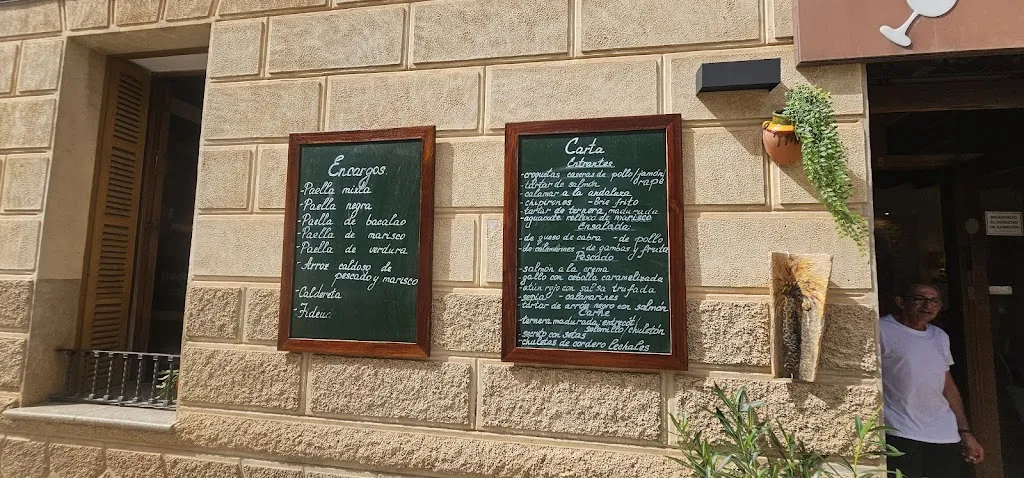 Encargos
-Paella mixta
-Paella negra
-Paella de bacalao
-Paella de marisco
-Paella de verdura
-Arroz caldoso de
pescado y marisco
-Caldereta
-Fideuá
Carta
Entrantes
-croquetas caseras de pollo/jamón/
rape
-tartar de salmón
-calamar a la andaluza
-chipirones -Brie frito
-tartar de ternera madurada
-aguacate relleno de marisco
Ensalada
-de queso de cabra -de pollo
-de calamares -de gambas y fruta
Pescado
-salmón a la crema
-gallo con cebolla caramelizada
-atún rojo con salsa trufada
-sepia -calamarines
-tartar de arróz negro con salmón
Carne
-ternera madurada: entrecot/
solomillo/chuletón
-secreto con setas
-chuletas de cordero lechales
RESERVADO
EL DERECHO
DE ADMISIÓN